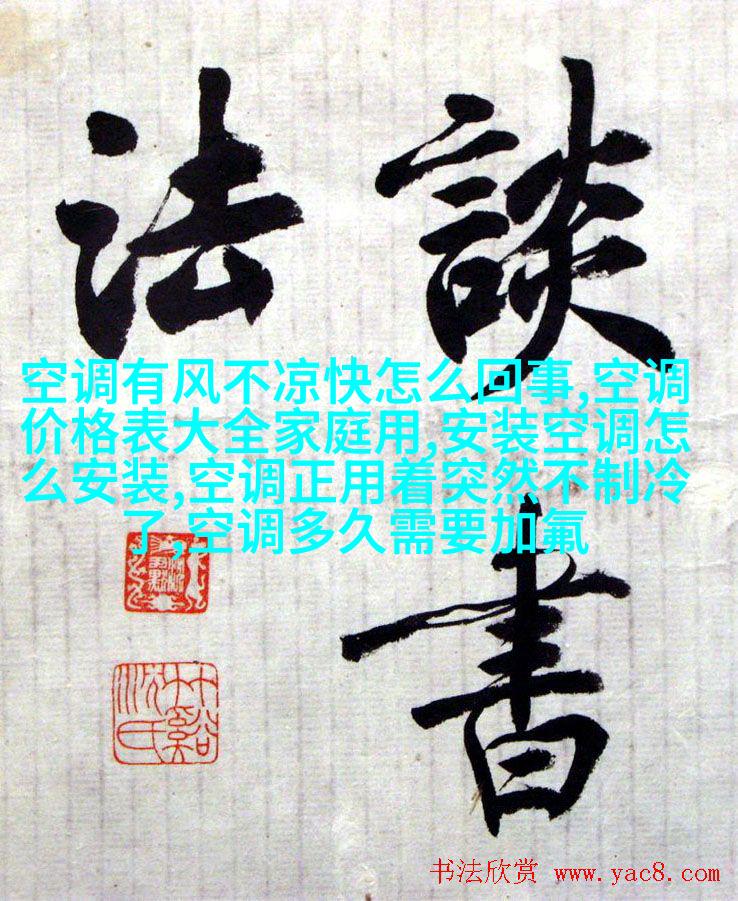 談書
法
空调有风不凉快怎么回事,空调
价格表大全家庭用,安装空调怎
么安装,空调正用着突然不制冷
了,空调多久需要加氟
书法欣赏 www.yac8.com